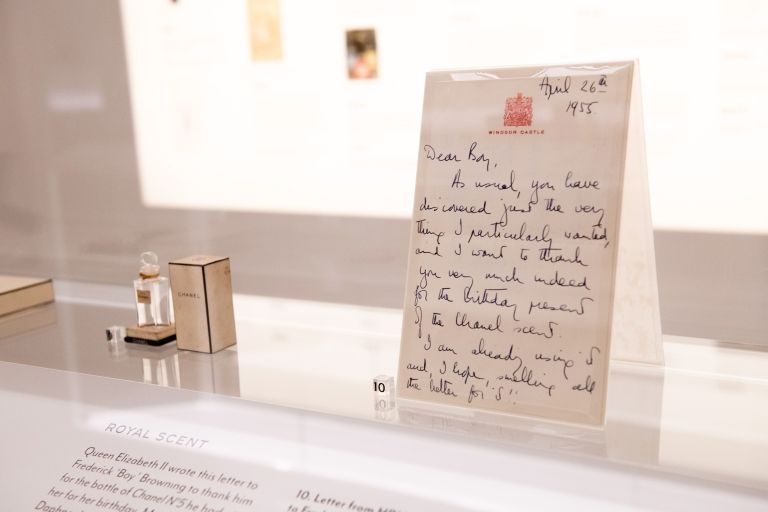 April 26th
1955.
WINDSOR CASTLE
Dear Boy,
As usual, you have
discovered just the very
thing I particularly wanted,
and I want to thank
you very much indeed
for the birthday present
of the Chanel scent.
I am already using it
and, I hope, smelling all
the better for it!!
CHANEL
10
ROYAL SCENT
Queen Elizabeth II wrote this letter to
Frederick 'Boy' Browning to thank him
for the bottle of Chanel N°5 he had
her for her birthday.
10. Letter from